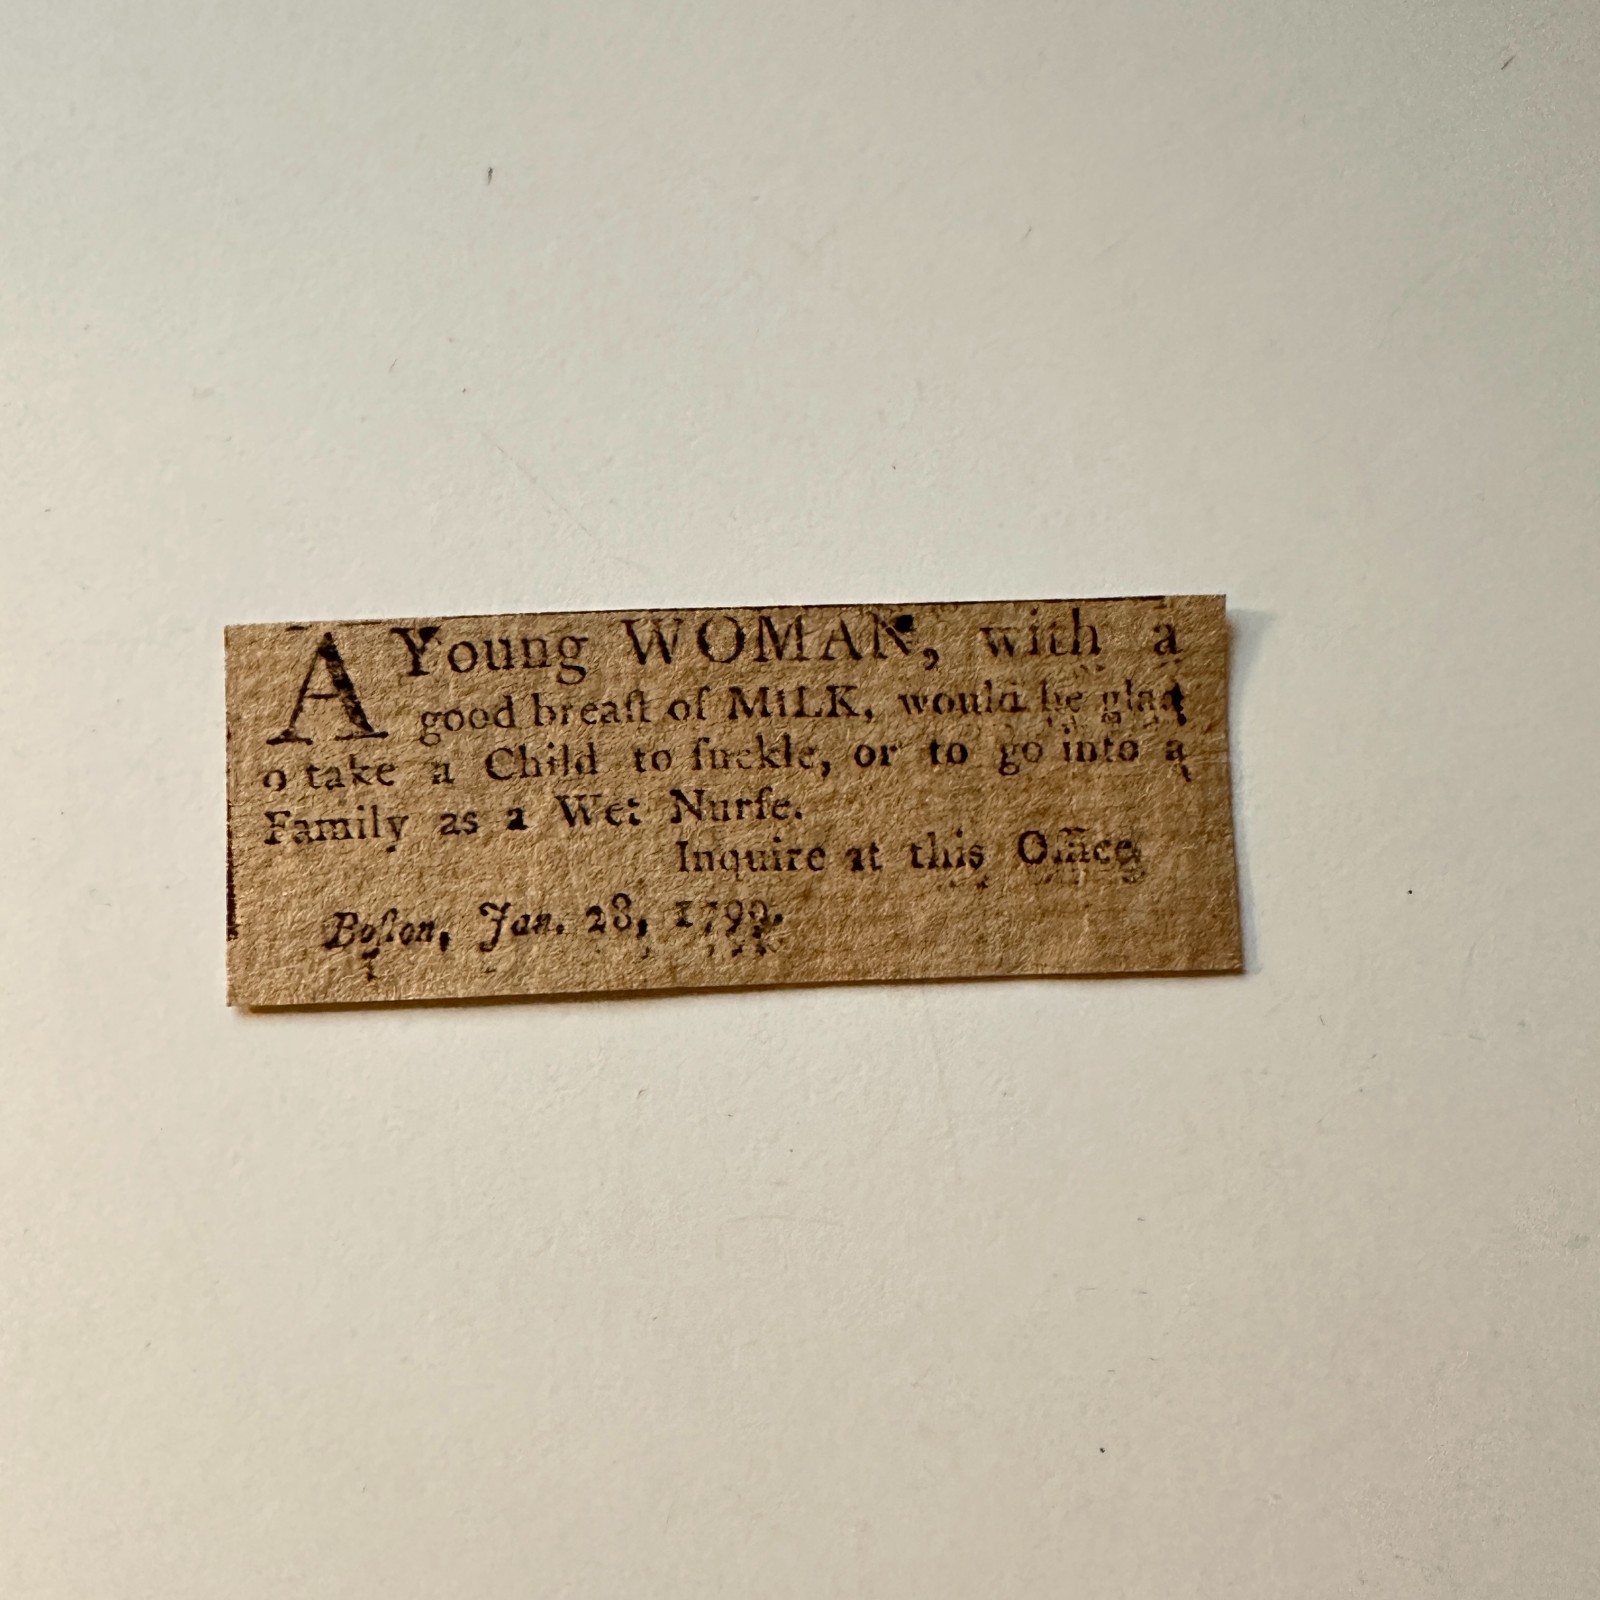 A Young WOMAN, with a
good breaſt of MILK, would be glad
o take a Child to ſuckle, or to go into a
Family as a Wet Nurſe.
Inquire at this Office.
Boſton, Jan. 28, 1799.